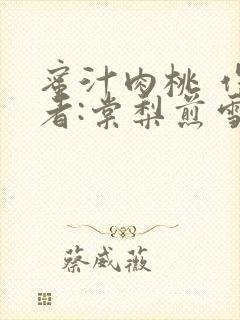 蜜汁肉桃 作
者:棠梨煎雪
蔡威薇